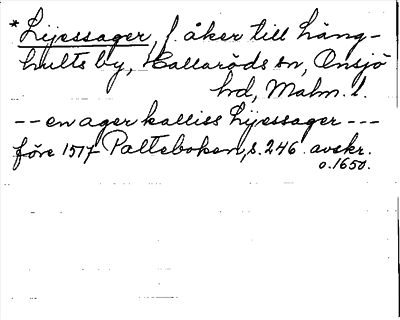 *Lijessager, f. åker till Häng-
hults by, Hallaröds sn, Onsjö
hd, Malm. l.
-- en ager kalliss Lijessager ---
före 1517 Palteboken, s. 246 avskr.
o. 1650.